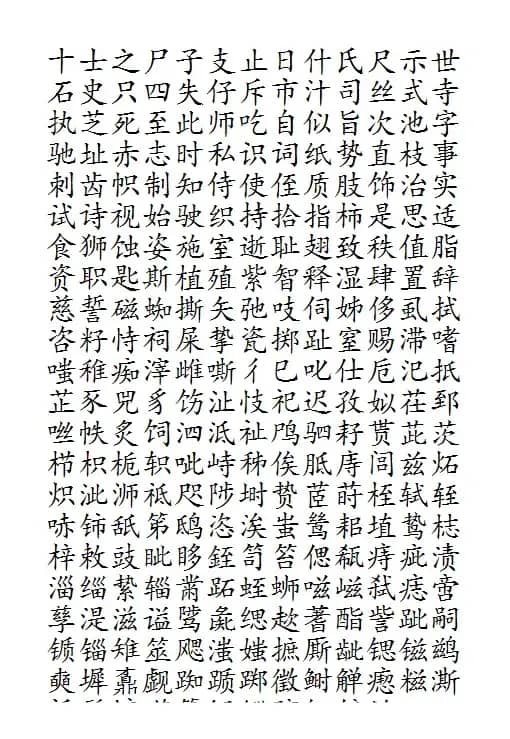 十士之尸子支止日什氏尺示世
石史只四失仔斥市汁司丝式寺
执芝死至此师吃自似旨次池字
驰址赤志时私识词纸势直枝事
刺齿帜制知侍使侄质肢饰治实
试诗视始驶织持拾指柿是思适
食狮蚀姿施室逝耻翅致秩值脂
资职匙斯植殖紫智释湿肆置辞
慈誓磁蜘撕矢弛吱伺姊侈虱拭
咨籽恃祠屎挚瓷掷趾窒赐滞嗜
嗤稚痴滓雌嘶彳巳叱仕卮汜抵
芷豕兕豸饬沚忮祀迟孜姒茌郅
咝帙炙饲泗泜祉鸤驷耔贳茈茨
栉枳栀轵呲峙秭俟胝庤闾兹炻
炽泚浉祗咫陟埘贽茝莳桎轼轾
哧铈舐笫鸱恣涘蚩鸶耜埴鸷梽
梓敕豉眦眵铚笥笞偲瓻痔疵渍
淄缁絷辎黹跖蛭蛳嗞嵫弑痣啻
孳湜滋谥骘彘缌趑蓍酯訾跐嗣
锧锱雉筮飔滍媸摭厮龇锶镃鹚
奭墀鼒觑踟踬踯徵鲥觯瘛糍澌